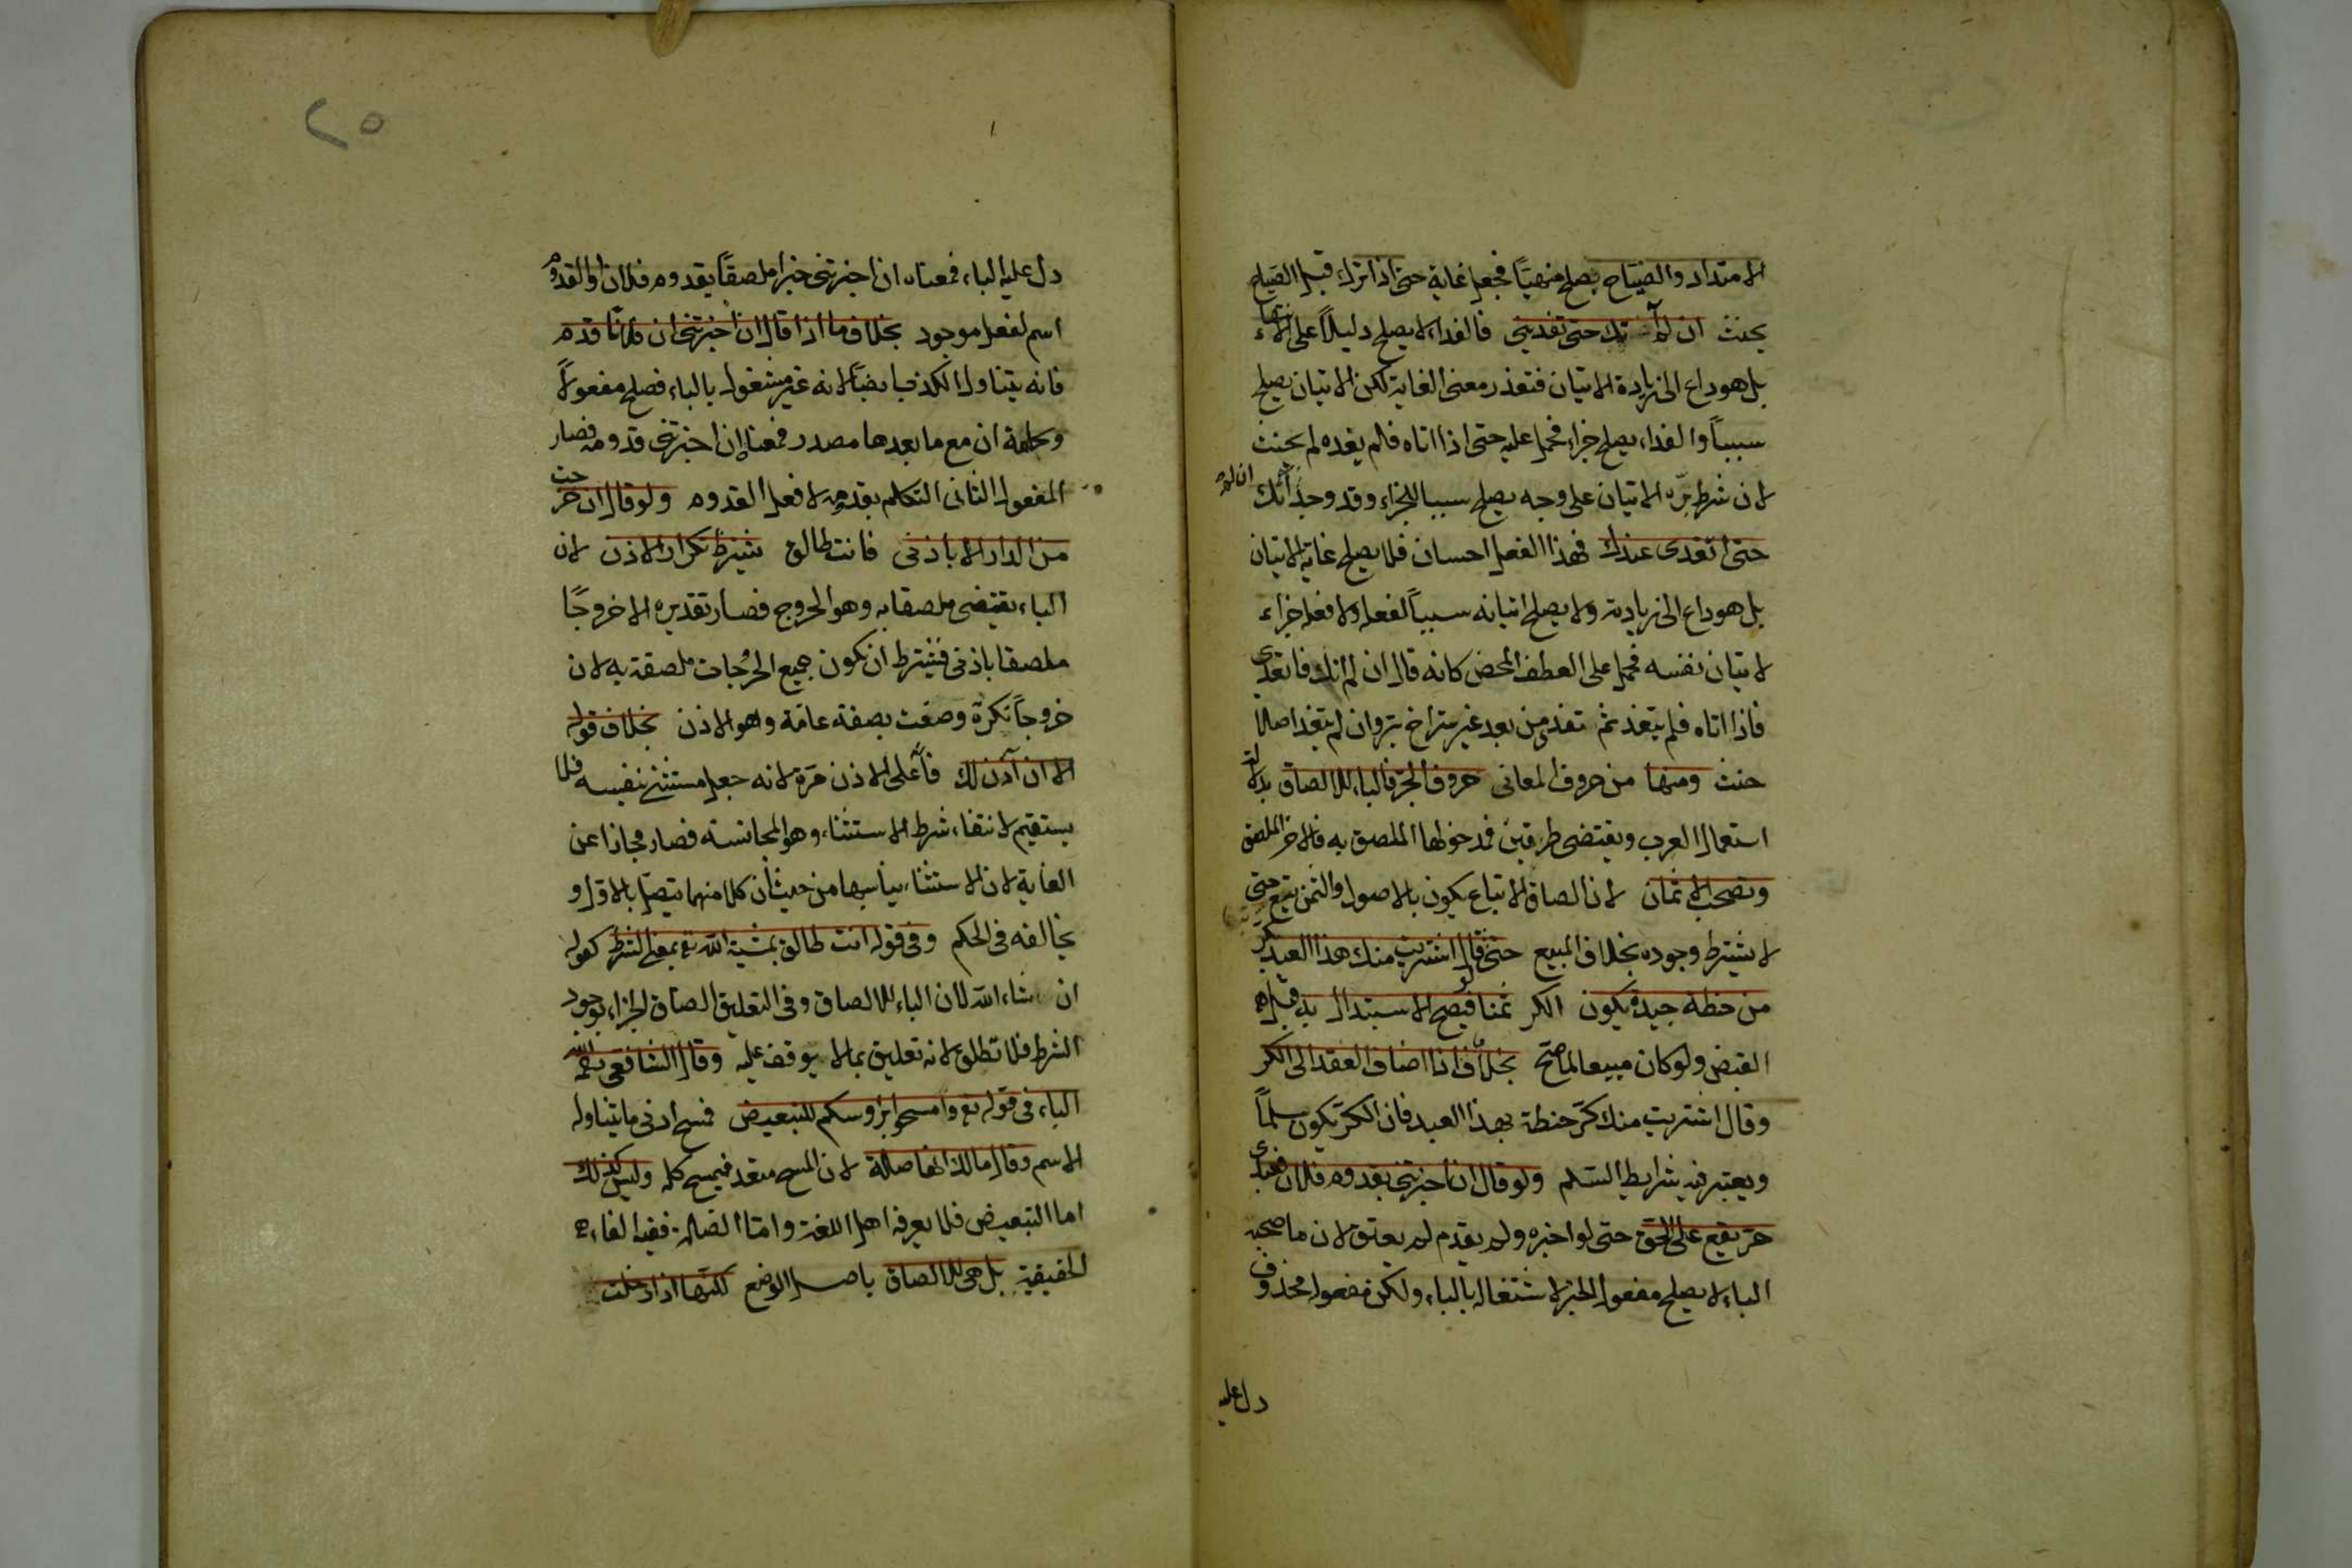 الامتداد والصياح يصلح منهيًا فجعل غاية حتى اذا ترك قبل الصياح
يحنث ان لم آتك حتى تغديني فالغداء لا يصلح دليلاً على انتهاء
بل هو داع الى زيادة الاتيان فتعذر معنى الغاية لكن الاتيان يصلح
سبباً والغداء يصلح جزاء فحمل عليه حتى اذا اتاه فلم يغده لم يحنث
لان شرط برّه الاتيان على وجه يصلح سببا للجزاء وقد وجد ان لم آتك
حتى اتغدى عندك فهذا الفعل احسان فلا يصلح غاية الاتيان
بل هو داع الى زيادته ولا يصلح اتيانه سبباً لفعله ولا فعله جزاء
لاتيان نفسه فحمل على العطف المحض كانه قال ان لم اتك فاتغدى
فاذا اتاه فلم يتغد ثم تغدى من بعد غير متراخ بر وان لم يتغد اصلا
حنث ومنها من حروف المعاني حروف الجر فالباء للالصاق بدلالة
استعمال العرب ويقتضى طرفين فمدخولها الملصق به فالاخر الملصق
وتصحب الاثمان لان الصاق الاتباع يكون بالاصول والثمن تبع حتى
لا يشترط وجوده بخلاف المبيع حتى لو قال اشتريت منك هذا العبد بكر
من حنطة جيدة يكون الكر ثمنا فيصح الاستبدال به قبل
القبض ولو كان مبيعا لما صح بخلاف اذا اضاف العقد الى الكر
وقال اشتريت منك كرّ حنطة بهذا العبد فان الكرّ يكون سلماً
ويعتبر فيه شرايط السّلم ولو قال ان اخبرتني بقدوم فلان فعبدى
حرّ يقع على الحق حتى لو اخبره ولم يقدم لم يعتق لان ما صحبه
الباء لا يصلح مفعول الخبر لاشتغاله بالباء ولكن مفعوله محذوف
دل عليه
٢٥
دل عليه الباء فمعناه ان اخبرتنى خبرا ملصقًا بقدوم فلان والقدوم
اسم لفعل موجود بخلاف ما اذا قال ان اخبرتنى ان فلانًا قدم
فانه يتناول الكذب ايضًا لانه غير مشغول بالباء فصلح مفعولاً
وكلمة ان مع ما بعدها مصدر فمعناه ان اخبرتنى قدومه فصار
المفعول الثانى التكلم بقدومه لا فعل القدوم ولو قال ان خرجت
من الدار الا باذنى فانت طالق يشترط تكرار الاذن لان
الباء يقتضى ملصقا به وهو الخروج فصار تقديره الا خروجًا
ملصقا باذنى فيشترط ان يكون جميع الخرجات ملصقة به لان
خروجاً نكرة وصفت بصفة عامّة وهو الاذن بخلاف قوله
الا ان آذن لك على الاذن مرّة لانه جعل مستثنى بنفسه فلا
يستقيم لانتفاء شرط الاستثناء وهو المجانسة فصار مجازا عن
الغاية لان الاستثناء يناسبها من حيث ان كلا منهما يتصل بالاول و
يخالفه فى الحكم وفى قوله انت طالق بمشية الله تع بمعنى الشرط كقوله
ان شاء الله لان الباء للالصاق وفى التعليق الصاق الجزاء بوجود
الشرط فلا تطلق لانه تعليق بما لا يوقف عليه وقال الشافعى رحمه الله
الباء فى قوله تع وامسحوا برؤسكم للتبعيض فمسح ادنى ما يتناوله
الاسم وقال مالك انها صلة لان المسح متعد فيمسح كله وليس كذلك
اما التبعيض فلا يعرفه اهل اللغة وامّا الصلة ففيه الغاء
الحقيقية بل هى للالصاق باصل الوضع لكنها اذا دخلت